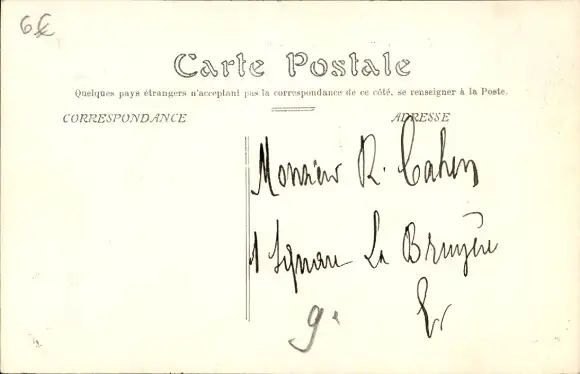 6€
Carte Postale
Quelques pays étrangers n'acceptant pas la correspondance de ce côté, se renseigner à la Poste.
CORRESPONDANCE
ADRESSE
Monsieur R. Cahen
1 Square La Bruyère
9e